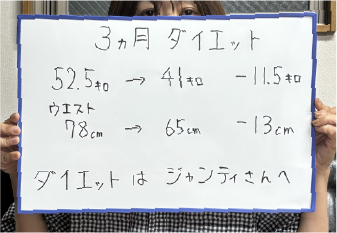 3ヵ月 ダイエット
52.5キロ → 41キロ -11.5キロ
ウエスト
78cm → 65cm -13cm
ダイエットは ジャンティさんへ